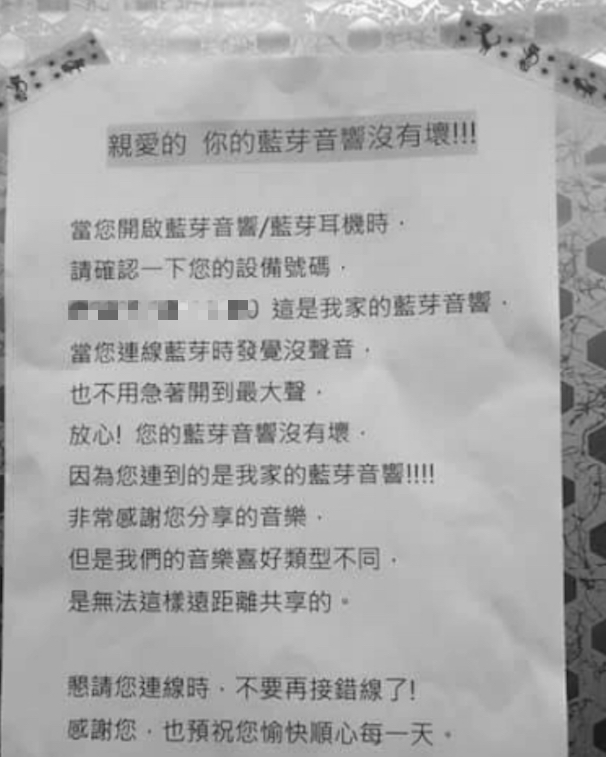 親愛的 你的藍芽音響沒有壞!!!
當您開啟藍芽音響/藍芽耳機時，
請確認一下您的設備號碼，
這是我家的藍芽音響，
當您連線藍芽時發覺沒聲音，
也不用急著開到最大聲，
放心! 您的藍芽音響沒有壞，
因為您連到的是我家的藍芽音響!!!!
非常感謝您分享的音樂，
但是我們的音樂喜好類型不同，
是無法這樣遠距離共享的。
懇請您連線時，不要再接錯線了!
感謝您，也預祝您愉快順心每一天。